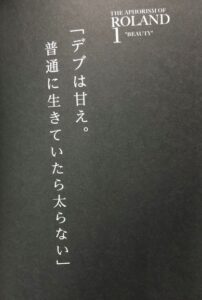 THE APHORISM OF
ROLAND
1 "BEAUTY"
「デブは甘え。
普通に生きていたら太らない」